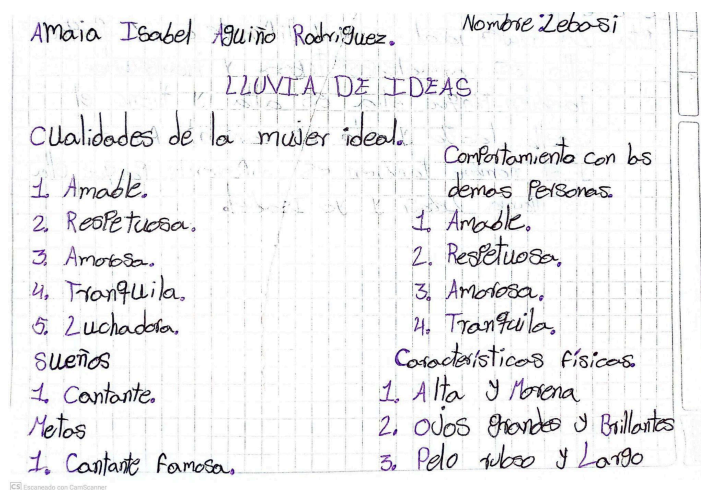 Amaia Isabel Aguiño Rodriguez.
Nombre: Lebasi
LLUVIA DE IDEAS
Cualidades de la mujer ideal.
1. Amable.
2. Respetuosa.
3. Amorosa.
4. Tranquila.
5. Luchadora.
Sueños
1. Cantante.
Metas
1. Cantante famosa.
Comportamiento con los
demas Personas.
1. Amable.
2. Respetuosa.
3. Amorosa.
4. Tranquila.
Caracteristicas físicas.
1. Alta y Morena
2. Ojos grandes y Brillantes
3. Pelo y Largo
CS Escaneado con CamScanner